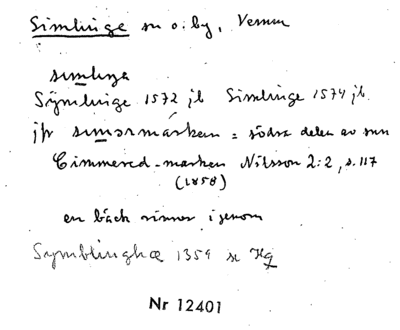 Simlinge sn o. by, Vemm
simlinga
Symlinge 1572 jb Simlinge 1574 jb.
jfr simormarken = södra delen av sun
Cimmered-marken Nilsson 2:2, s. 117
(1858)
en bäck rinner igenom
Symblinghæ 1359 sc Hg
Nr 12401